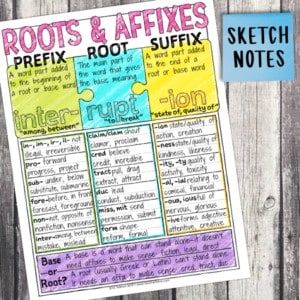 ROOTS & AFFIXES
SKETCH
NOTES
PREFIX
ROOT
SUFFIX
A word part added
to the beginning of
a root or base word
The main part of
the word that gives
the basic meaning
A word part added
to the end of a
root or base word
inter-
"among, between"
rupt
"to break"
-ion
"state of, quality of"
in-, im-, ir-, il- not
illegal, irreversible
pro- forward
progress, project
sub- under, below
substitute, submarine
fore-before, in front
forecast, foreground
non-not, opposite of
nonfiction, nonsense
inter-among, between
mistake, mislead
claim/clam shout
clamor, proclaim
cred believe
credit, incredible
tract pull, drag
extract, attract
duc lead
conduct, subduction
miss, mit send
permission, submit
form shape
reform, formal
-ion state/quality of
action, creation
-ness state/quality of
kindness, likeliness
-ity, -ty quality of
activity, toxicity
-al, -ial relating to
comical, financial
-ous, ious full of
nervous, glorious
-ive forms adjective
affective, creative
Base
or
Root?
A base is a word that can stand alone-it doesn't
need affixes to make sense: fiction, legal, direct
A root (usually Greek or Latin) can't stand alone
It needs an affix to make sense: cred, tract, duc